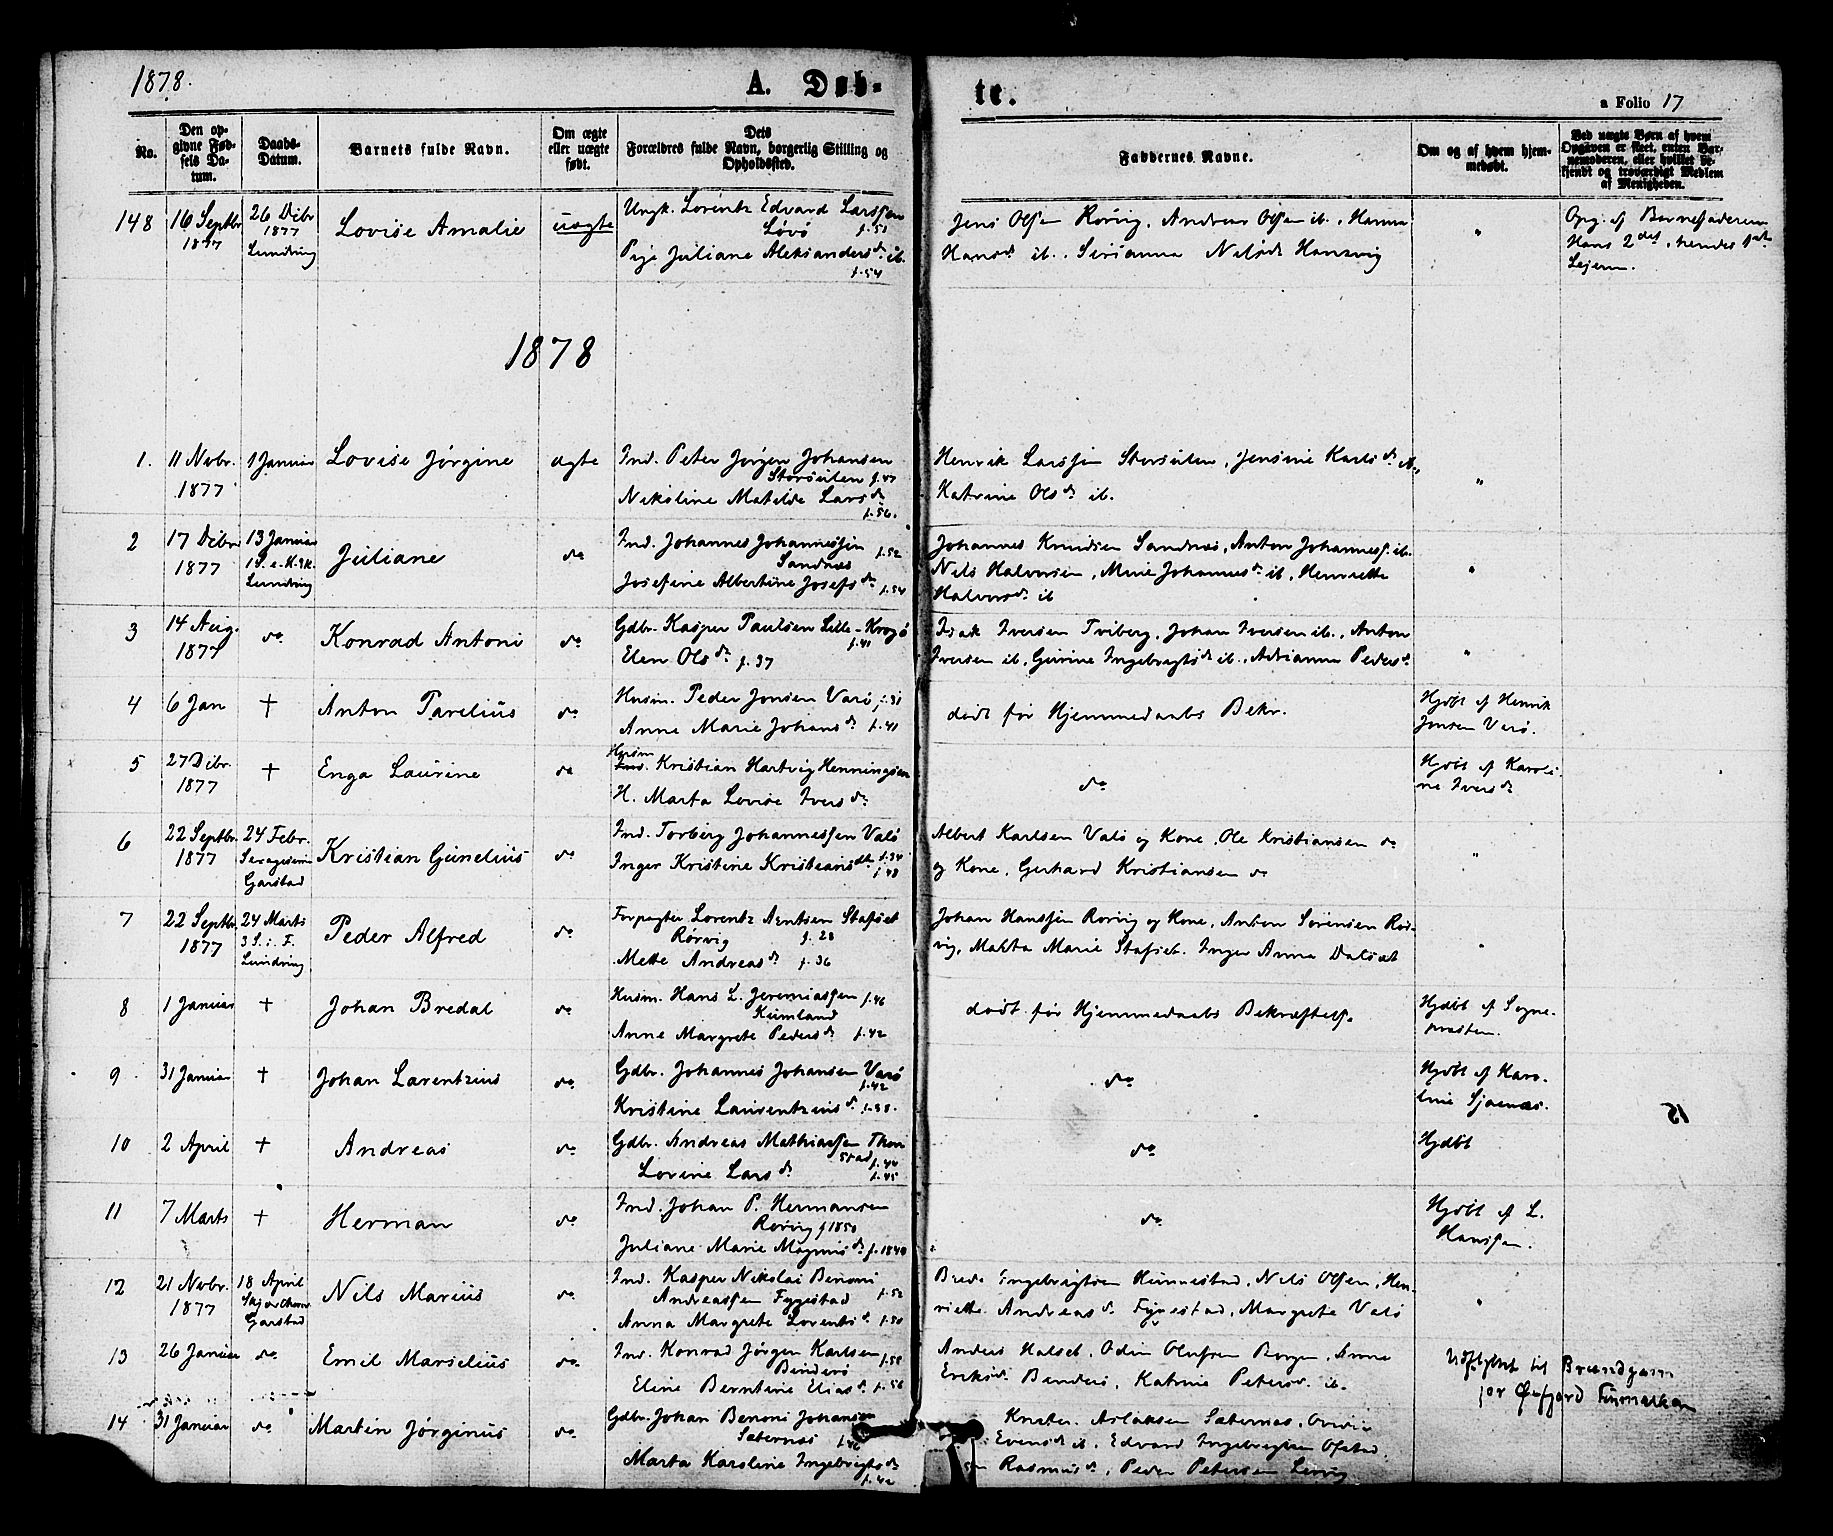 1878.
A. Døb-
te.
a Folio 17
No.
Den op-
givne Fød-
sels Da-
tum.
Daabs-
Datum.
Barnets fulde Navn.
Om ægte
eller uægte
født.
Dets
Forældres fulde Navn, borgerlig Stilling og
Opholdssted.
Faddernes Navne.
Om og af hvem hjem-
medøbt.
Ved uægte Børn af hvem
Opgaven er skeet, enten Bar-
nemoderen, eller hvilket be-
kjendt og troværdigt Medlem
af Menigheden.
148
16 Septbr
1877
26 Debr
1877
Lundring
Lovise Amalie
uægte
Ungk. Lorentz Edvard Larssen
Løvø f.51
Pige Juliane Aleksanders d. ib.
f.54
Jens Olsen Rørvig, Andreas Olsen ib., Hanna
Hans d. ib., Sirianna Nels d. Hansvig
"
Opg. af Barnefaderen
Hans 2det, hendes 1ste
Lejerm.
1878
1.
11 Novbr.
1877
1 Januar
Lovise Jørgine
ægte
Ind. Peter Jørgen Johansen
Storsulen f.47
Nikoline Matilde Lars d.
f.56.
Henrik Larssen Storsulen, Jensine Karls d.
Katrine Ols d. ib.
"
2
17 Debr
1877
13 Januar
1 S. e. H. 3 K.
Lundring
Juliane
do
Ind. Johannes Johannessen f.52
Sandnæs
Josefine Albertine Josefs d. f.54
Johannes Knudsen Sandnæs, Anton Johanness. ib.
Nils Halvorsen, Mine Johannes d. ib, Henriette
Halvors d. ib
"
3
14 Aug.
1877
do
Konrad Antoni
do
Gdbr. Kasper Paulsen Lille-Krogø
f.41
Elen Ols d. f.37
Isak Iversen Tviberg, Johan Iversen ib., Anton
Iversen ib, Gurine Ingebrigts d. ib., Adrianna Peders d.
"
4
6 Jan
+
Anton Parelius
do
Husm. Peder Jonsen Varø f.31
Anne Marie Johans d. f.41
død før Hjemmedaabs Bekr.
Hjdbt af Henrik
Jonsen Varø.
5
27 Debr.
1877
+
Enga Laurine
do
Husm
Kristian Hartvig Henningsen
H. Marta Lovise Ivers d.
do
Hjdbt af Karoli-
ne Ivers d.
6
22 Septbr.
1877
24 Febr.
Garstad
Kristian Gunelius
do
Ind. Torberg Johannessen Valø
f.34
Inger Kristine Kristians dtr f.48
Albert Karlsen Valø og Kone, Ole Kristiansen do
og Kone, Gerhard Kristiansen do
"
7
22 Septbr.
1877
24 Marts
3 S. i F.
Lundring
Peder Alfred
do
Forpagter Lorentz Arntsen Stafset
Rørvig f.28
Mette Andreas d. f.36
Johan Hanssen Rørvig og Kone, Anton Sørensen Rør-
vig, Makta Marie Stafset. Inger Anna Dalsæt
"
8
1 Januar
+
Johan Bredal
do
Husm. Hans L. Jeremiassen f.46
Kumland
Anne Margrete Peders d. f.42
død før Hjemmedaabs Bekræftelse.
Hjdbt af Sogne-
præsten.
9
31 Januar
+
Johan Larentzius
do
Gdbr. Johannes Johansen Varø
f.42
Kristine Laurentzius d. f.38.
do
Hjdbt af Karo-
line Sjoenæs.
10
2 April
+
Andreas
do
Gdbr. Andreas Mathiassen Thon-
stad f.44
Lovine Lars d. f.45
do
Hjdbt
11
7 Marts
+
Herman
do
Ind. Johan P. Hermansen
Rørvig f.1850
Juliane Marie Magnus d. f.1840
do
Hjdbt af L.
Hanssen.
12
21 Novbr.
1877
18 April
Garstad
Nils Marius
do
Ind. Kasper Nikolai Benoni
Andreassen Fygestad f.52
Anna Margrete Lorents d. f.50
Brede Engebrigtsen Hunnestad, Nils Olsen, Hen-
riette Andreas d. Fygestad, Margrete Valø
"
13
26 Januar
do
Emil Marselius
do
Ind. Konrad Jørgen Karlsen
Bindærø f.58
Eline Berntine Elias d. f.56
Anders Halset, Odin Olufsen Borgan, Anna
Eriks d. Bendæs, Katrine Peters d. ib.
Udflyttet til Brandgam
for Øxfjord Finmarken
14
31 Januar
do
Martin Jørginus
do
Gdbr. Johan Benoni Johansen
Sæternæs f.46
Marta Karoline Ingebrigts d.
f.42
Aslaksen Sæternæs,
Evens d. ib, Edvard Ingebrigtsen Ofstad,
Rasmus d., Peder Petersen
15